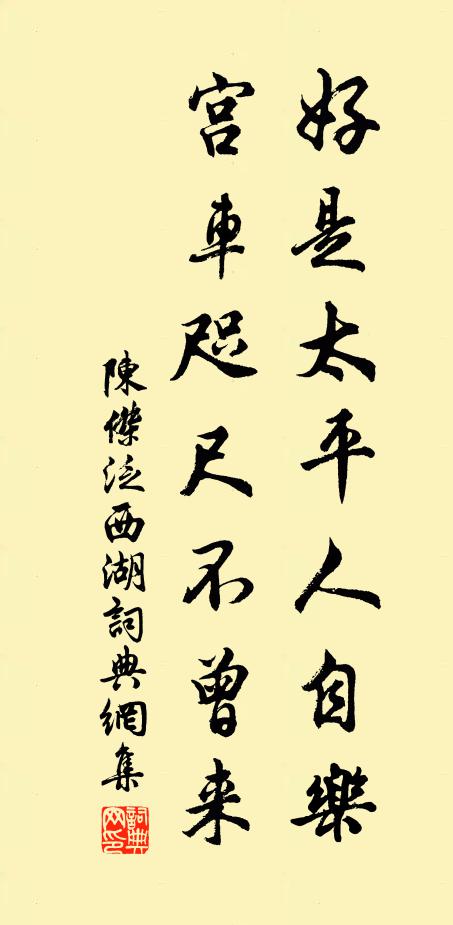 好是太平人自樂
宮車咫尺不曾来
陳傑泛西湖詞典網集
詞典网印